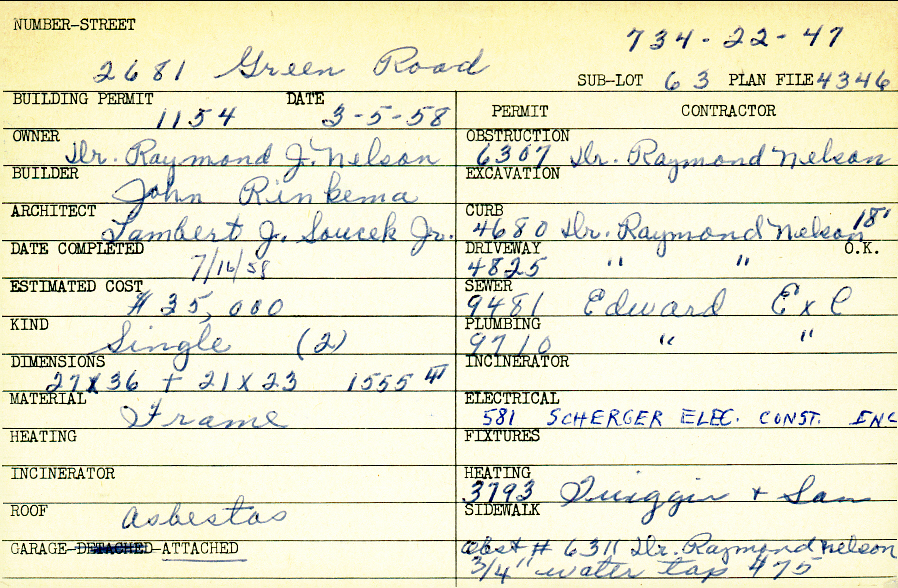 NUMBER-STREET
734-22-47
2681 Green Road
SUB-LOT 63 PLAN FILE 4346
BUILDING PERMIT 1154 DATE 3-5-58
OWNER Dr. Raymond J. Nelson
BUILDER John Rinkema
ARCHITECT Lambert J. Soucek Jr.
DATE COMPLETED 7/16/58
ESTIMATED COST # 35,000
KIND Single (2)
DIMENSIONS 27 x 36 + 21 x 23 1555
MATERIAL Frame
HEATING
INCINERATOR
ROOF asbestos
GARAGE-DETACHED-ATTACHED
PERMIT CONTRACTOR
OBSTRUCTION 6307 Dr. Raymond Nelson
EXCAVATION
CURB 4680 Dr. Raymond Nelson 18'
DRIVEWAY 4825 " " O.K.
SEWER 9481 Edward Ex C
PLUMBING 9710 " "
INCINERATOR
ELECTRICAL 581 SCHERGER ELEC. CONST. INC
FIXTURES
HEATING 3793 Quiggin + Son
SIDEWALK
obst # 6311 Dr. Raymond Nelson
3/4" water tap 475